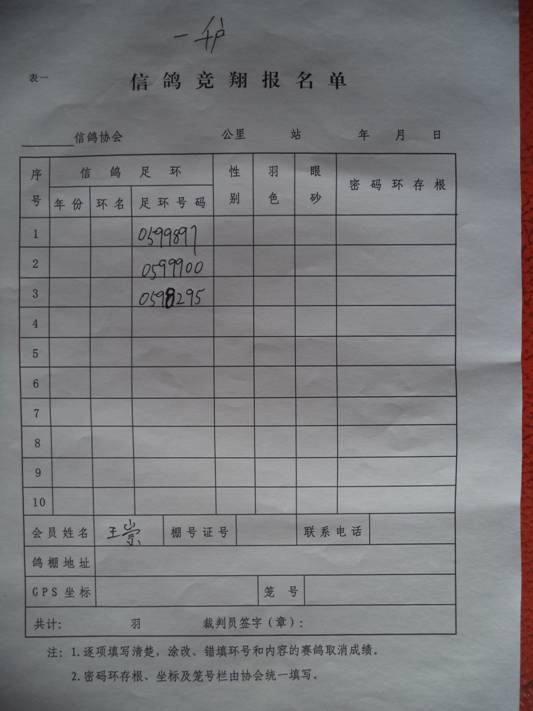 一
表一
信鸽竞翔报名单
信鸽协会 公里 站 年 月 日
序号 信鸽足环 性别 羽色 眼砂 密码环存根
年份 环名 足环号码
1 0599897
2 0599900
3 0598295
4
5
6
7
8
9
10
会员姓名 王崇 棚号证号 联系电话
鸽棚地址
GPS坐标 笼号
共计: 羽 裁判员签字(章):
注: 1.逐项填写清楚,涂改、错填环号和内容的赛鸽取消成绩。
2.密码环存根、坐标及笼号栏由协会统一填写。